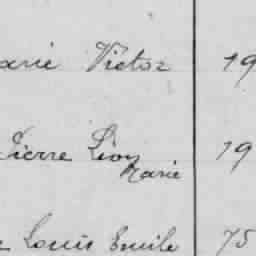 arie Victor 19
Pierre Léon 19
Marie
Louis Emile 75